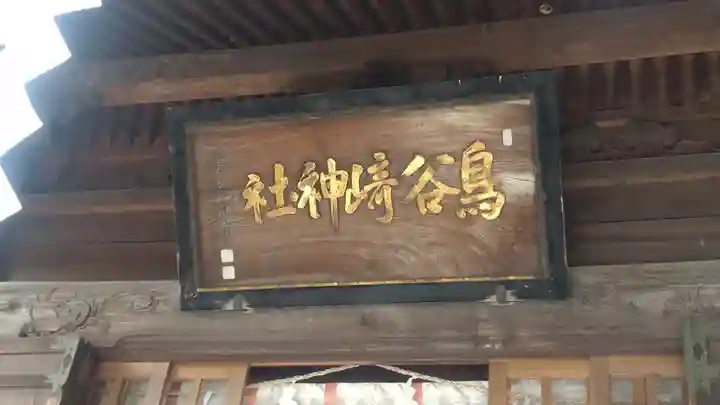 鳥谷崎神社